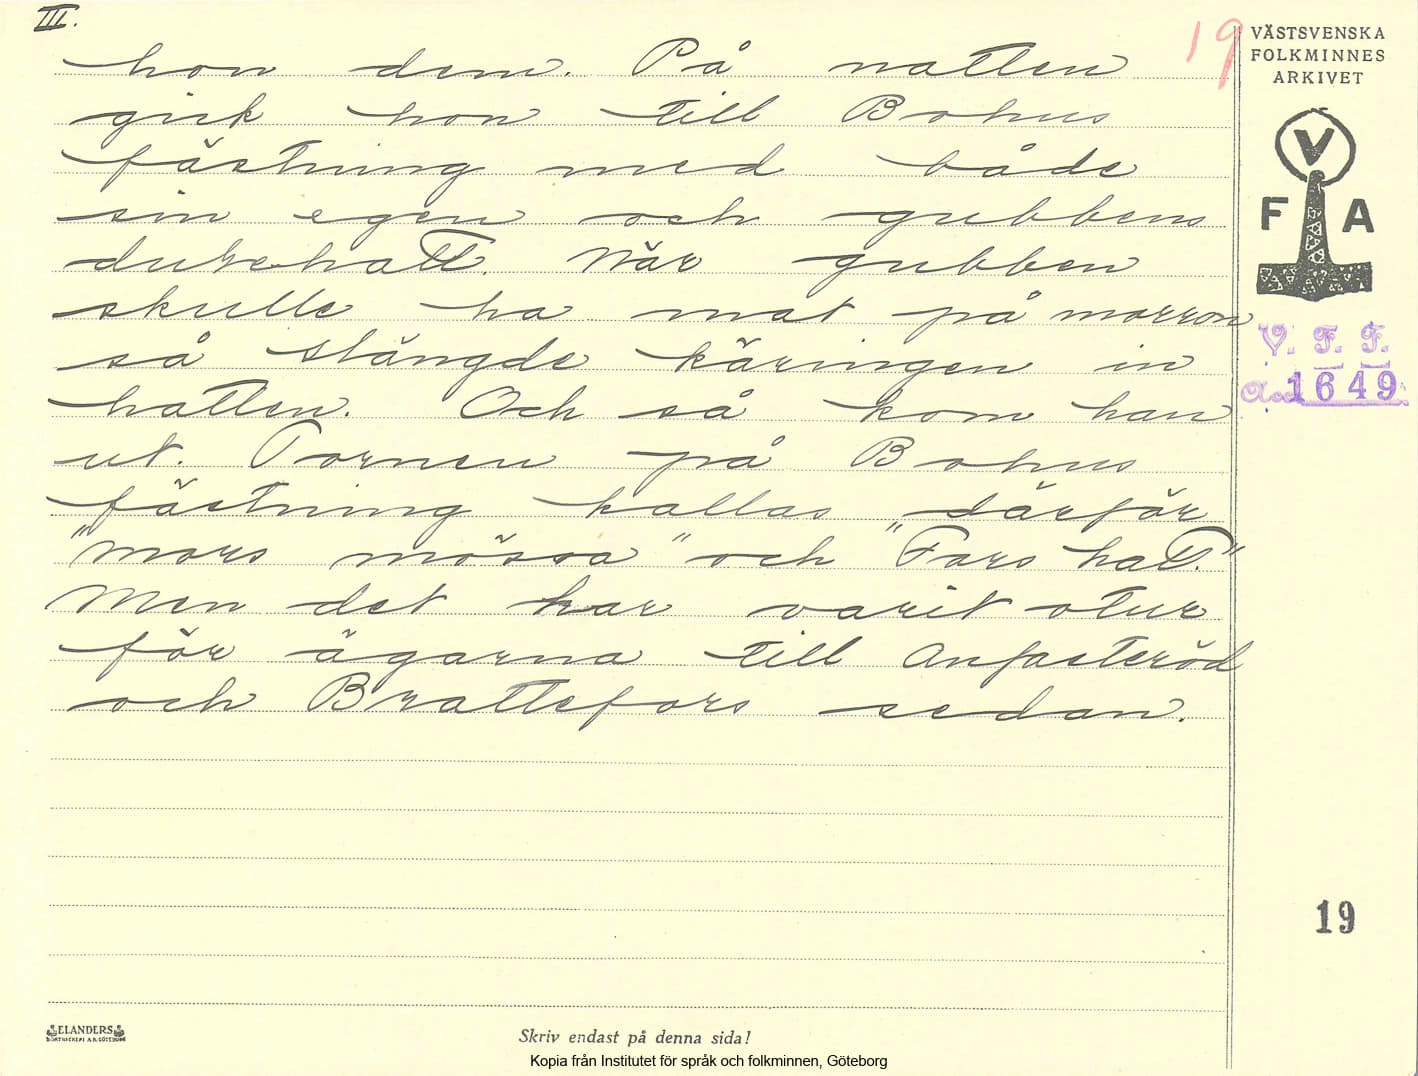 III.
19
hon dem. På natten
gick hon till Bohus
fästning med både
sin egen och gubbens
durkhatt. När gubben
skulle ha mat på morron
så slängde käringen in
hatten. Och så kom han
ut. Tornen på Bohus
fästning kallas därför
"mors mössa" och "Fars hatt."
Men det har varit otur
för ägarna till Anfasteröd
och Brattefors sedan.
VÄSTSVENSKA
FOLKMINNES
ARKIVET
V
F A
V. F. F.
Acc. 1649
19
ELANDERS
BOKTRYCKERI A.B. GÖTEBORG
Skriv endast på denna sida!
Kopia från Institutet för språk och folkminnen, Göteborg